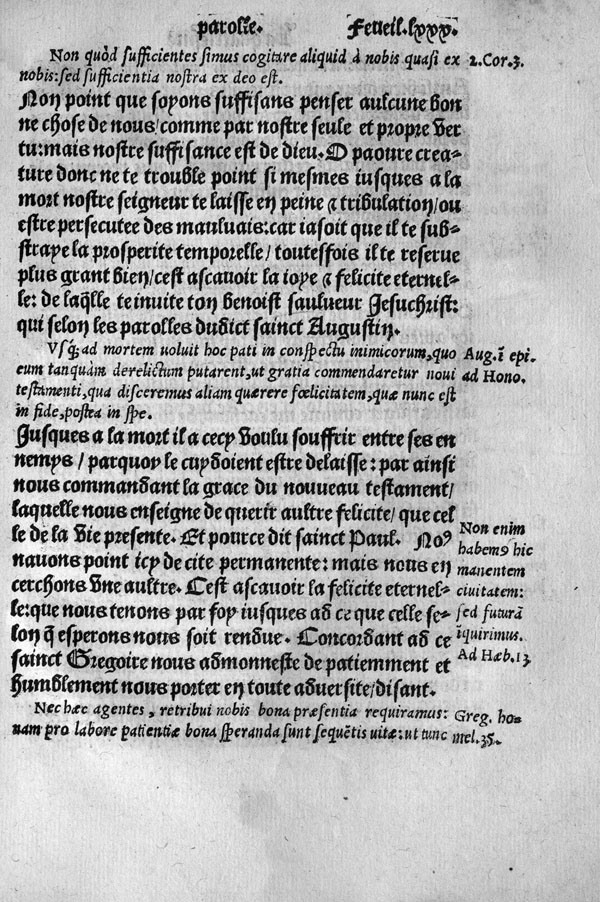 parolle. Feueil.lxxx.
Non quòd sufficientes simus cogitare aliquid à nobis quasi ex 2.Cor.3.
nobis:sed sufficientia nostra ex deo est.
Non point que soyons suffisans penser aulcune bon
ne chose de nous/comme par nostre seule et propre ver
tu:mais nostre suffisance est de dieu. O paoure crea-
ture donc ne te trouble point si mesmes iusques a la
mort nostre seigneur te laisse en peine ⁊ tribulation/ou
estre persecutee des mauluais:car iasoit que il te sub-
straye la prosperite temporelle/ toutesfois il te reserue
plus grant bien/cest ascauoir la ioye ⁊ felicite eternel-
le: de laq̃lle te inuite ton benoist saulueur Jesuchrist:
qui selon les parolles dudict sainct Augustin.
Vsq; ad mortem uoluit hoc pati in conspectu inimicorum,quo Aug.ĩ epi.
eum tanquàm derelictum putarent,ut gratia commendaretur noui ad Hono.
testamenti,qua disceremus aliam quærere fœlicitatem,quæ nunc est
in fide,postea in spe.
Jusques a la mort il a cecy voulu souffrir entre ses en
nemys / parquoy le cuydoient estre delaisse: par ainsi
nous commandant la grace du nouueau testament/
laquelle nous enseigne de querir aultre felicite/ que cel
le de la vie presente. Et pource dit sainct Paul. Noꝰ
nauons point icy de cite permanente: mais nous en
cerchons vne aultre. Cest ascauoir la felicite eternel-
le:que nous tenons par foy iusques ad ce que celle se-
lon q̃ esperons nous soit rendue. Concordant ad ce
sainct Gregoire nous admonneste de patiemment et
humblement nous porter en toute aduersite/disant.
Non enim
habemꝰ hic
manentem
ciuitatem:
sed futurã
ĩquirimus.
Ad Hæb.13
Nec hæc agentes, retribui nobis bona præsentia requiramus: Greg. ho-
nam pro labore patientiæ bona speranda sunt sequẽtis uitæ:ut tunc mel.35.